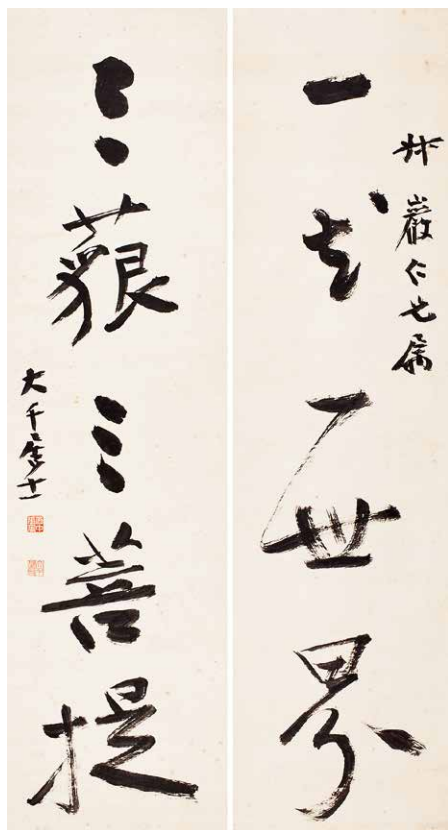 叔巖仁兄属
一花一世界
三藐三菩提
大千居士